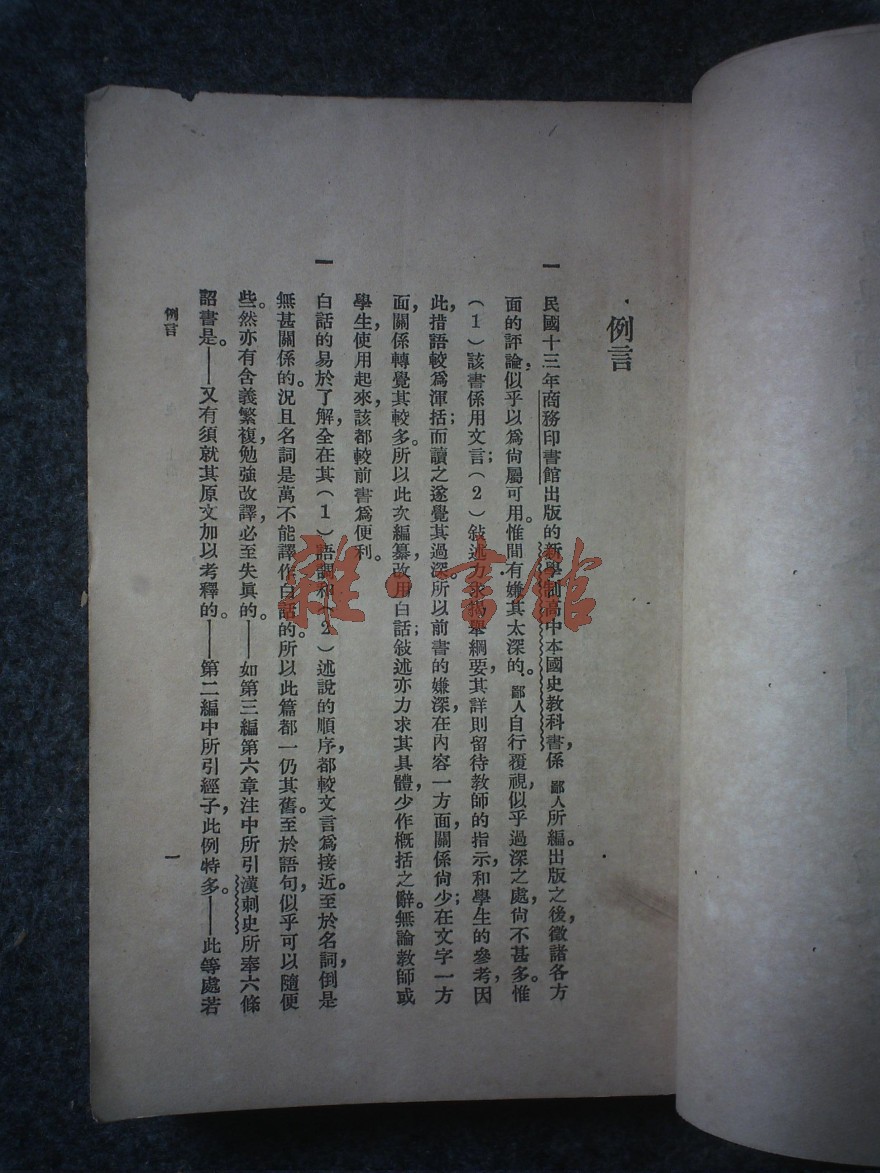 例言
一 民國十三年商務印書館出版的新學制高中本國史教科書，係鄙人所編。出版之後，徵諸各方
面的評論，似乎以爲尙屬可用。惟間有嫌其太深的。鄙人自行覆視，似乎過深之處，尙不甚多。惟
（1）該書係用文言；（2）敍述力求揭舉綱要，其詳則留待教師的指示，和學生的參考，因
此，措語較爲渾括；而讀之遂覺其過深。所以前書的嫌深，在內容一方面，關係尙少；在文字一方
面，關係轉覺其較多。所以此次編纂，改用白話；敍述亦力求其具體，少作概括之辭。無論教師或
學生，使用起來，該都較前書爲便利。
一 白話的易於了解，全在其（1）語調和（2）述說的順序，都較文言爲接近。至於名詞，倒是
無甚關係的。況且名詞是萬不能譯作白話的。所以此篇都一仍其舊。至於語句，似乎可以隨便
些。然亦有含義繁複，勉強改譯，必至失眞的。——如第三編第六章注中所引漢刺史所奉六條
詔書是。——又有須就其原文加以考釋的。——第二編中所引經子，此例特多。——此等處若
例言
一
雜·書館